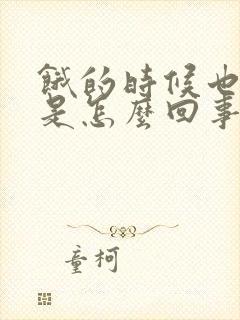 餓的時候也
是怎麼回事
童柯